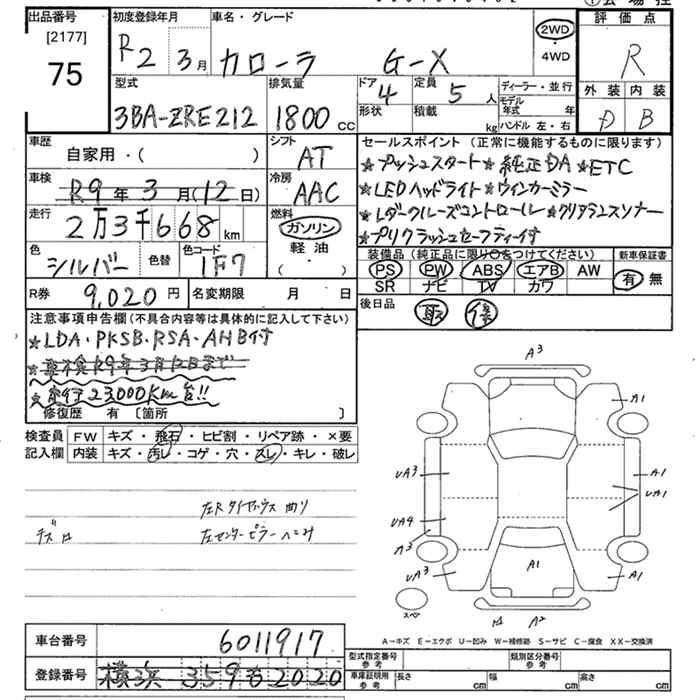 出品番号
[2177]
75
初度登録年月
R2 3月
車名・グレード
カローラ G-X
2WD
・
4WD
評価点
R
外装 内装
D B
型式
3BA-ZRE212
排気量
1800 cc
ドア
4
形状
定員
5 人
積載
kg
ディーラー・並行
モデル年式 年
ハンドル 左・右
車歴
自家用・( )
シフト
AT
車検
R9年3月(12日)
冷房
AAC
走行
2万3千668 km
燃料
ガソリン
軽油
( ・ )
色
シルバー
色替
色コード
1F7
R券
9,020円
名変期限 月 日
セールスポイント(正常に機能するものに限ります)
★プッシュスタート★純正DA★ETC
★LEDヘッドライト★ウィンカーミラー
★レダークルーズコントロール★クリアランスソナー
★プリクラッシュセーフティー付
装備品(純正品に限り○をつけてください)
PS PW ABS エアB AW
SR ナビ TV カワ
新車保証書
有 無
後日品
取 保
注意事項申告欄(不具合内容等は具体的に記入して下さい)
★LDA・PKSB・RSA・AHB付
★車検R9年3月12日まで
★走行23,000km台!!
修復歴 有 〔箇所 〕
検査員
記入欄
FW キズ・飛石・ヒビ割・リペア跡・×要
内装 キズ・汚レ・コゲ・穴・スレ・キレ・破レ
左Rタイヤハウス曲り
左センターピラーヘコミ
A3
A1
UA3
A1
UA1
UA4
A3
UA3
A1
A1
スペア
A2
A－キズ E－エクボ U－凹み W－補修跡 S－サビ C－腐食 XX－交換済
車台番号
6011917
登録番号
横浜 359 2020
型式指定番号
参考
類別区分番号
参考
車庫証明用
参考
長さ cm
幅 cm
高さ cm